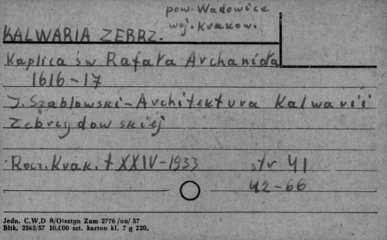 pow. Wadowice
woj. Krakow.
KALWARIA ZEBRZ.
Kaplica św Rafała Archanioła
1616-17
J. Szabłowski-Architektura Kalwarii
Zebrzydowskiej
Rocz. Krak. t XXIV-1933 str 41
42-66
Jedn. C.W.D 8/Olsztyn Zam 2776/on/ 57
Bltk. 2563/57 10.000 szt. karton kl. 7 g 220.